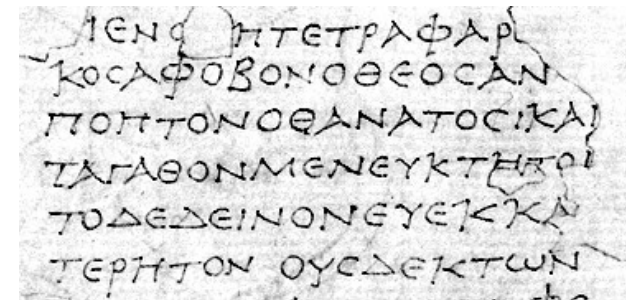 ΙΕΝΟ ΗΤΕΤΡΑΦΑΡ
ΚΟϹΑΦΟΒΟΝΟΘΕΟϹΑΝ
ΠΟΠΤΟΝΟΘΑΝΑΤΟϹΚΑΙ
ΤΑΓΑΘΟΝΜΕΝΕΥΚΤΗΤΟΙ
ΤΟΔΕΔΕΙΝΟΝΕΥΕΚΚΑ
ΤΕΡΗΤΟΝ ΟΥϹΔΕΚΤΩΝ